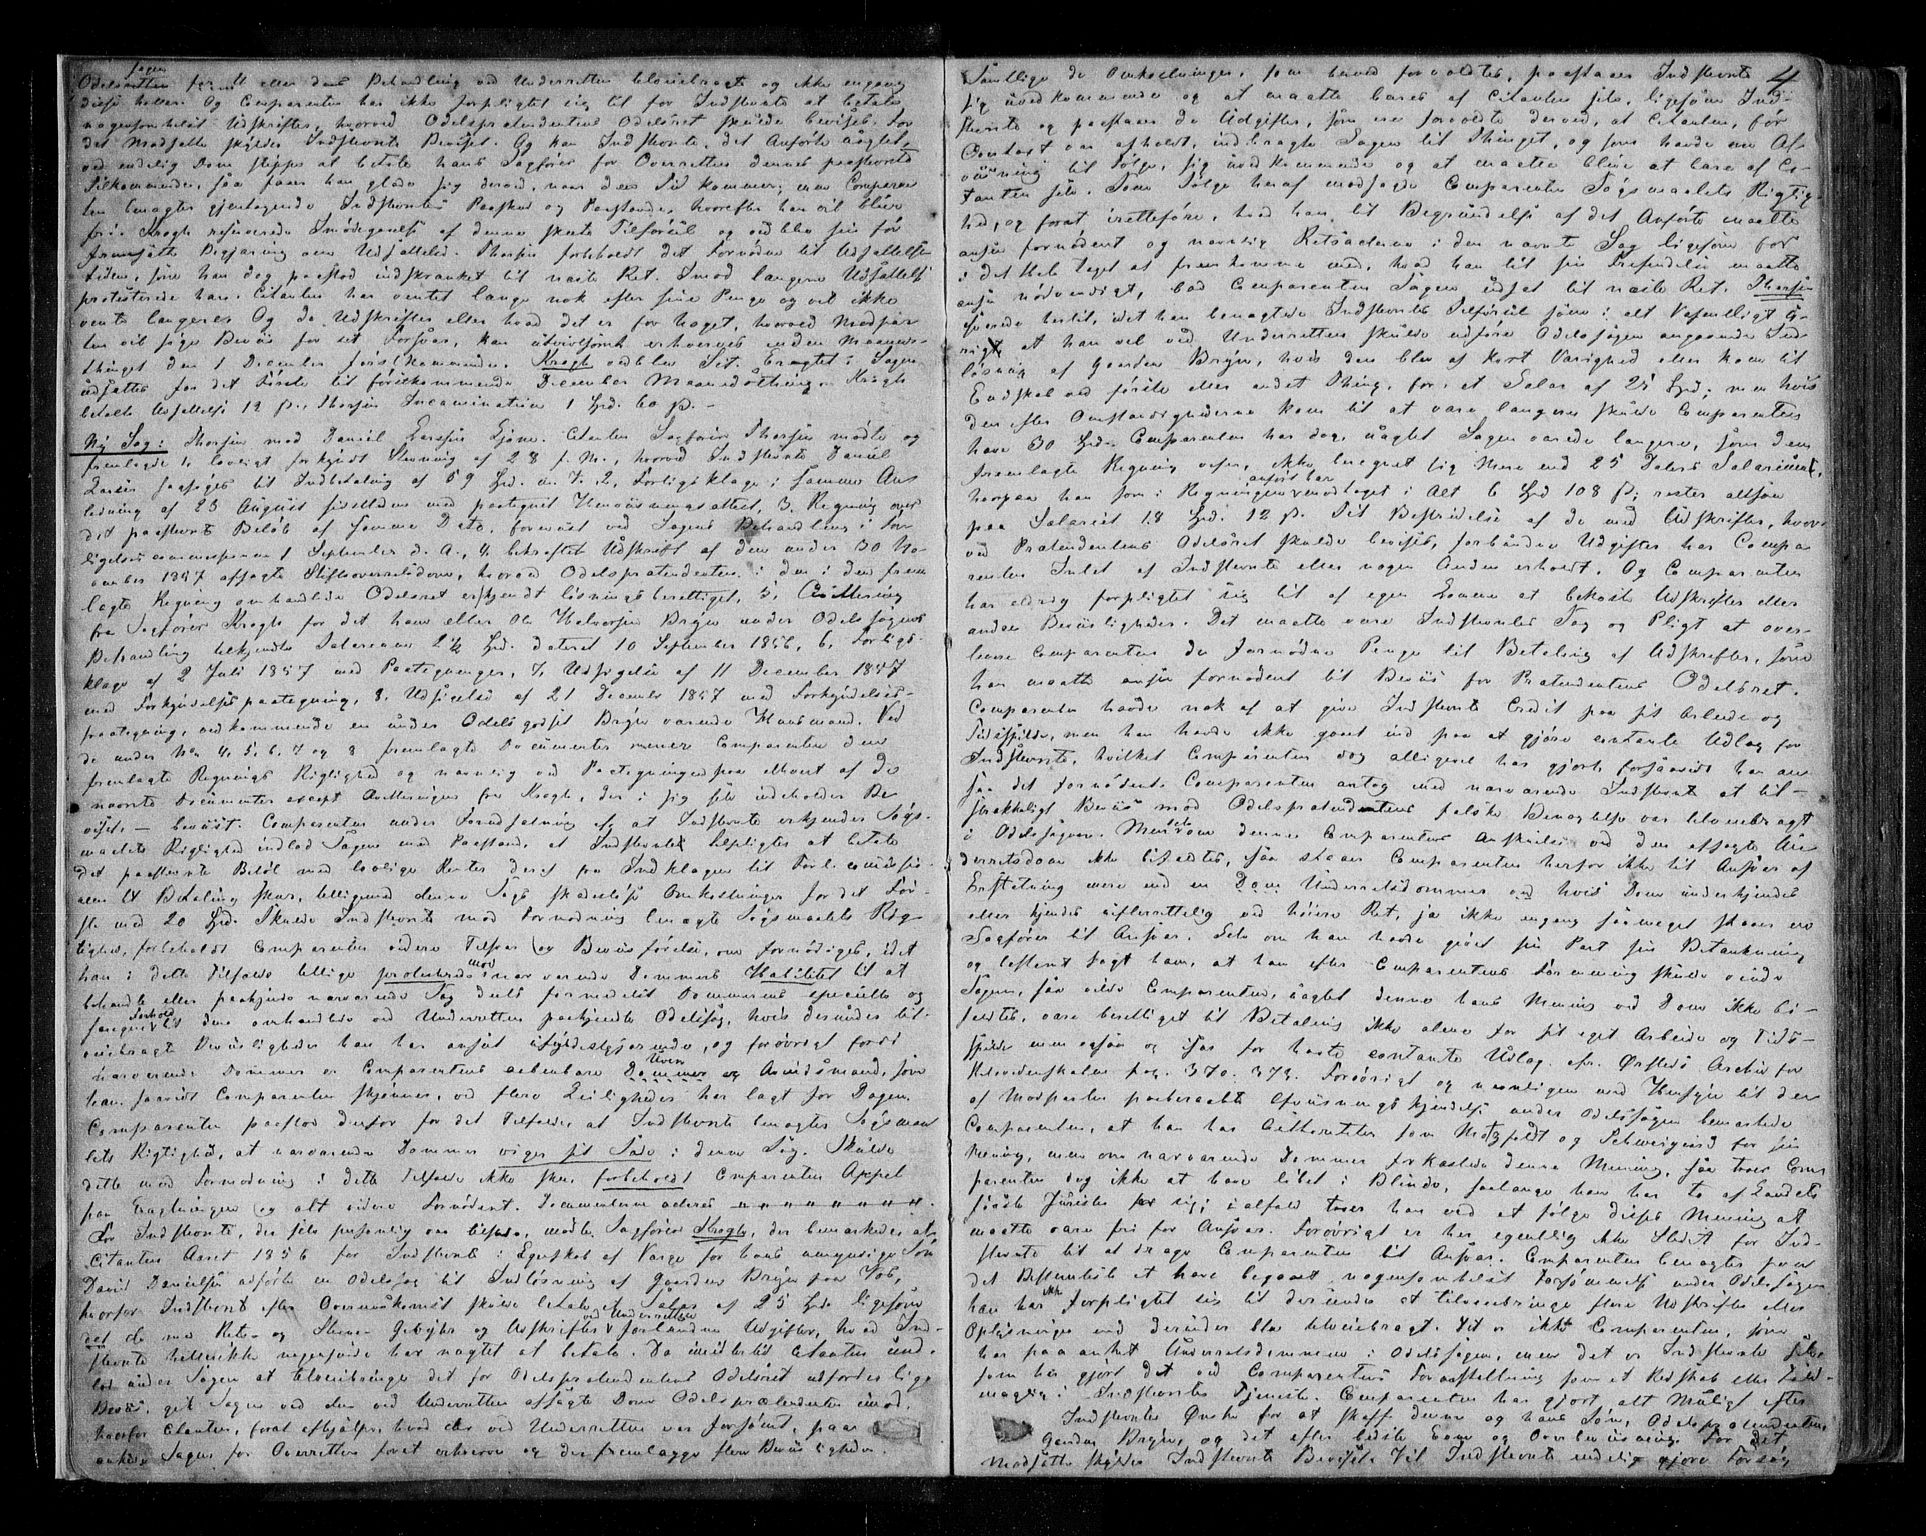 Sagen
Odelsretten før til eller dens Behandling ved Underretten tilveiebragt og ikke engang
disse heller. Og Comparenten har ikke forpligtet sig til for Indstevnte at betale
nogensomhelst Udskrifter, hvorved Odelsprætendentens Odelsret skulde bevises. For
det Modsatte skyldes Indstevnte Beviset. Og kan Indstevnte, det Anførte uagtet,
ved endelig Dom slippe at betale hans Sagfører for Overretten dennes paastevnte
Tilkommende, saa faaer han glæde sig derved, naar den Tid kommer; men Comparen
ten benægter gjentagende Indstevntes Paaskud og Paastande, hvorefter han vil
Krogh reserverede Imødegaaelse af denne sidste Tilførsel og vedblev sin før
fremsatte Begjæring om Udsættelse. Thorsen forbeholdt det Fornødne til Udsættelses
tiden, som han dog paastod indskrænket til næste Ret. Imod længere Udsættelse
protesterede han. Citanten har ventet længe nok efter sine Penge og vil ikke
vente længere. Og de Udskrifter eller hvad det er for noget, hvorved Modpar
ten vil søge Beviis for sit Forsvar, kan utvivlsomt erhverves inden Maaneds-
thinget den 1 December førstkommende. Krogh vedblev Sit. Eragtet: Sagen
udsættes for det Første til førstkommende December Maanedsthing. Krogh
betalte Udsættelse 12 ß., Thorsen Incamination 1 Spd. 60 ß. –
Ny Sag: Thorsen mod Daniel Larsen Ljøne. Citanten Sagfører Thorsen mødte og
fremlagde 1, lovligt forkyndt Stevning af 28 f. M., hvorved Indstevnte Daniel
Larsen sagsøges til Indbetaling af 59 Spd. m. v. 2, Forligsklage i samme An
ledning af 25 August sidstleden med paategnet Henviisningsattest, 3. Regning over
det paastevnte Beløb af samme Dato, foreviist ved Sagens Behandling i For
ligelsescommissionen 1 September d. A., 4. bekræftet Udskrift af den under 30 No
vember 1857 afsagte Stiftsoverretsdom, hvorved Odelsprætendenten i den i den frem
lagte Regning omhandlede Odelsret erkjendt løsningsberettiget, 5, Qvittering
fra Sagfører Krogh for det ham eller Ole Halvorsen Bryn under Odelssagens
Behandling tilkjendte Salarium 2½ Spd. dateret 10 September 1856, 6, Forligs-
klage af 2 Juli 1857 med Paategninger, 7, Udsigelse af 11 December 1857
med Forkyndelsespaategning, 8, Udsigelse af 21 December 1857 med Forkyndelses-
paategning, vedkommende en under Odelsgodset Bryn værende Huusmand. Ved
de under No 4, 5, 6, 7 og 8 fremlagte Documenter mener Comparenten den
fremlagte Regnings Rigtighed og navnlig ved Paategningen paa ethvert af de
nævnte Documenter except Qvitteringen fra Krogh, der i sig selv indeholder Be
viset, – beviist. Comparenten under Forudsætning af at Indstevnte erkjender Søgs-
maalets Rigtighed indlod Sagen med Paastand, at Indstevnte tilpligtes at betale
det paastevnte Beløb med lovlige Renter deraf fra Indklagen til Forl. commissio-
nen til Betaling skeer, tilligemed denne Sags skadesløse Omkostninger for det Før-
ste med 20 Spd. Skulde Indstevnte mod Formodning benægte Søgsmaalets Rig-
tighed, forbeholdt Comparenten videre Tilsvar og Beviisførelse, om fornødiges, idet
han i dette Tilfælde tillige protesterede mod nærværende Dommers Habilitet til at
behandle eller paakjende nærværende Sag deels formedelst Dommerens specielle og
foregne Forhold til den omhandlede ved Underretten paakjendte Odelssag, hvis derunder til-
veiebragte Beviisligheder han har anseet utilfyldestgjørende, og forøvrigt fordi
nærværende Dommer er Comparentens aabenbare Uven og Avindsmand, som
han, saavidt Comparenten skjønner, ved flere Leiligheder har lagt for Dagen.
Comparenten paastod derfor for det Tilfælde, at Indstevnte benægter Søgsmaa
lets Rigtighed, at nærværende Dommer viger sit Sæde i denne Sag. Skulde
dette mod Formodning i dette Tilfælde ikke skee, forbeholdt Comparenten Appel
paa Eragtningen og alt videre Fornødent. Documenterne acteres " " " " " " ".
For Indstevnte, der selv personlig var tilstede, mødte Sagfører Krogh, der bemærkede, at
Citanten Aaret 1856 for Indstevnte i Egenskab af Værge for hans umyndige Søn
David Danielsen anførte en Odelssag til Indløsning af Gaarden Bryn paa Vos,
hvorfor Indstevnte efter Overeenskomst skulde betale i Salær af 25 Spd. ligesom
det de med Rets- og Stevne Gebyhr og Udskrifter ved Underretten forbundne Udgifter, hvad Ind-
stevnte heller ikke nogensinde har nægtet at betale. Da imidlertid Citanten und-
lod under Sagen at tilveiebringe det for Odelsprætendentens Odelsret udfordrelige
Beviis, gik Sagen ved den ved Underretten afsagte Dom Odelsprætendenten imod,
hvorfor Citanten, forat afhjælpe, hvad der ved Underretten var forsømt, paa
ankede Sagen for Overretten forat erhverve og der fremlægge flere Beviisligheder.
4
Samtlige de Omkostninger, som herved foranledtes, paastaaer Indstevnte
sig uvedkommende og at maatte bæres af Citanten selv, ligesom Ind-
stevnte og paastaaer de Udgifter, som ere foraarsagede derved, at Citanten, før
Contract var afholdt, indbragte Sagen til Thinget, og som havde en Af-
viisning til Følge, sig uvedkommende og at maatte blive at bære af Ci-
tanten selv. Som Følge heraf modsagde Comparenten Søgsmaalets Rigtig-
hed, og forat irettføre, hvad han til Begrundelse af det Anførte maatte
ansee fornødent og navnlig Retsacterne i den nævnte Sag ligesom for
i det Hele taget at fremkomme med, hvad han til sin Defendelse maatte
ansee nødvendigt, bad Comparenten Sagen udsat til næste Ret. Thorsen
svarede hertil, idet han benægtede Indstevntes Tilførsel som i alt Væsentligt u-
rigt at han vel ved Underretten skulde udføre Odelssagen angaaende Ind-
løsning af Gaarden Bryn, hvis den blev af kort Varighed eller kom til
Endskab ved første eller andet Thing, for et Salær af 25 Spd., men hvis
den efter Omstændighederne kom til at vare længere skulde Comparenten
have 30 Spd. Comparenten har dog, uagtet Sagen varede længere, som den
fremlagte Regning viser, ikke beregnet sig Mere end 25 Dalers Salarium,
hvorpaa han som i Regningen anført har modtaget i Alt 6 Spd 108 ß; rester altsaa
paa Salariet 18 Spd. 12 ß. Til Bestridelse af de med Udskrifter, hvor-
ved Prætendentens Odelsret skulde bevises, forbundne Udgifter har Compa
renten Intet af Indstevnte eller nogen Anden erholdt. Og Comparenten
har aldrig forpligtet sig til af egen Lomme at bekoste Udskrifter eller
andre Beviisligheder. Det maatte være Indstevntes Sag og Pligt at over-
levere Comparenten de fornødne Penge til Betaling af Udskrifter, som
han maatte ansee fornødent til Beviis for Prætendentens Odelsret.
Comparenten havde nok af at give Indstevnte Credit paa sit Arbeide og
Tidsspilde, men han havde ikke gaaet ind paa at gjøre contante Udlæg for
Indstevnte, hvilket Comparenten dog alligevel har gjort, forsaavidt han an
saa det fornødent. Comparenten antog med nærværende Indstevnte at til-
strækkeligt Beviis mod Odelsprætendentens falske Benægtelse var tilveiebragt
i Odelssagen. Men da om dennes Comparentens Anskuelse ved den afsagte Un-
derretsdom ikke bifaldtes, saa staaer Comparenten herfor ikke til Ansvar af
Erstatning mere end en Dom Underretsdommer ved hvis Dom underkjendes
eller kjendes uefterrettelig ved høiere Ret, ja ikke engang saameget staaer en
Sagfører til Ansvar. Selv om han havde givet sin Part sin Betænkning
og bestemt sagt ham, at han efter Comparentens Formening skulde vinde
Sagen, saa vilde Comparenten, uagtet denne hans Mening ved Dom ikke bi-
faldtes, være berettiget til Betaling ikke alene for sit eget Arbeide og Tids-
spilde men ogsaa og især for havte contante Udlæg. cfr. Ørsteds Archiv for
Retsvidenskaben pag. 370. 373. Forøvrigt og navnligen med Hensyn til den
af Modparten paaberaabte Afviisningskjendelse under Odelssagen bemærkede
Comparenten, at han har Authoriteter som Motzfeldt og Schweigaard for sin
Mening, men om nærværende Dommer forkastede denne Mening, saa troer Com
parenten dog ikke at have løbet i Blinde, saalænge han har to af Landets
første Jurister for sig; ialfald troer han ved at følge disses Mening at
maatte være fri for Ansvar. Forøvrigt er her egentlig ikke Stedet for Ind-
stevnte til at drage Comparenten til Ansvar. Comparenten benægter paa
det Bestemteste at have begaaet nogensomhelst Forsømmelse under Odelssagen
han har ikke forpligtet sig til derunder at tilveiebringe flere Udskrifter eller
Oplysninger end derunder blev tilveiebragt. Det er ikke Comparenten, som
har paaanket Underretsdommen i Odelssagen, men det er Indstevnte selv
som har gjort det ved Comparentens Foranstaltning som et Redskab eller Fuld-
mægtig i Indstevntes Tjeneste. Comparenten har gjort alt Muligt efter
Indstevntes Ønske for at skaffe denne og hans Søn, Odelsprætendenten,
Gaarden Bryn, og det efter bedste Evne og Overbeviisning. For det
Modsatte skyldes Indstevnte Beviset. Vil Indstevnte endelig gjøre Forsøg